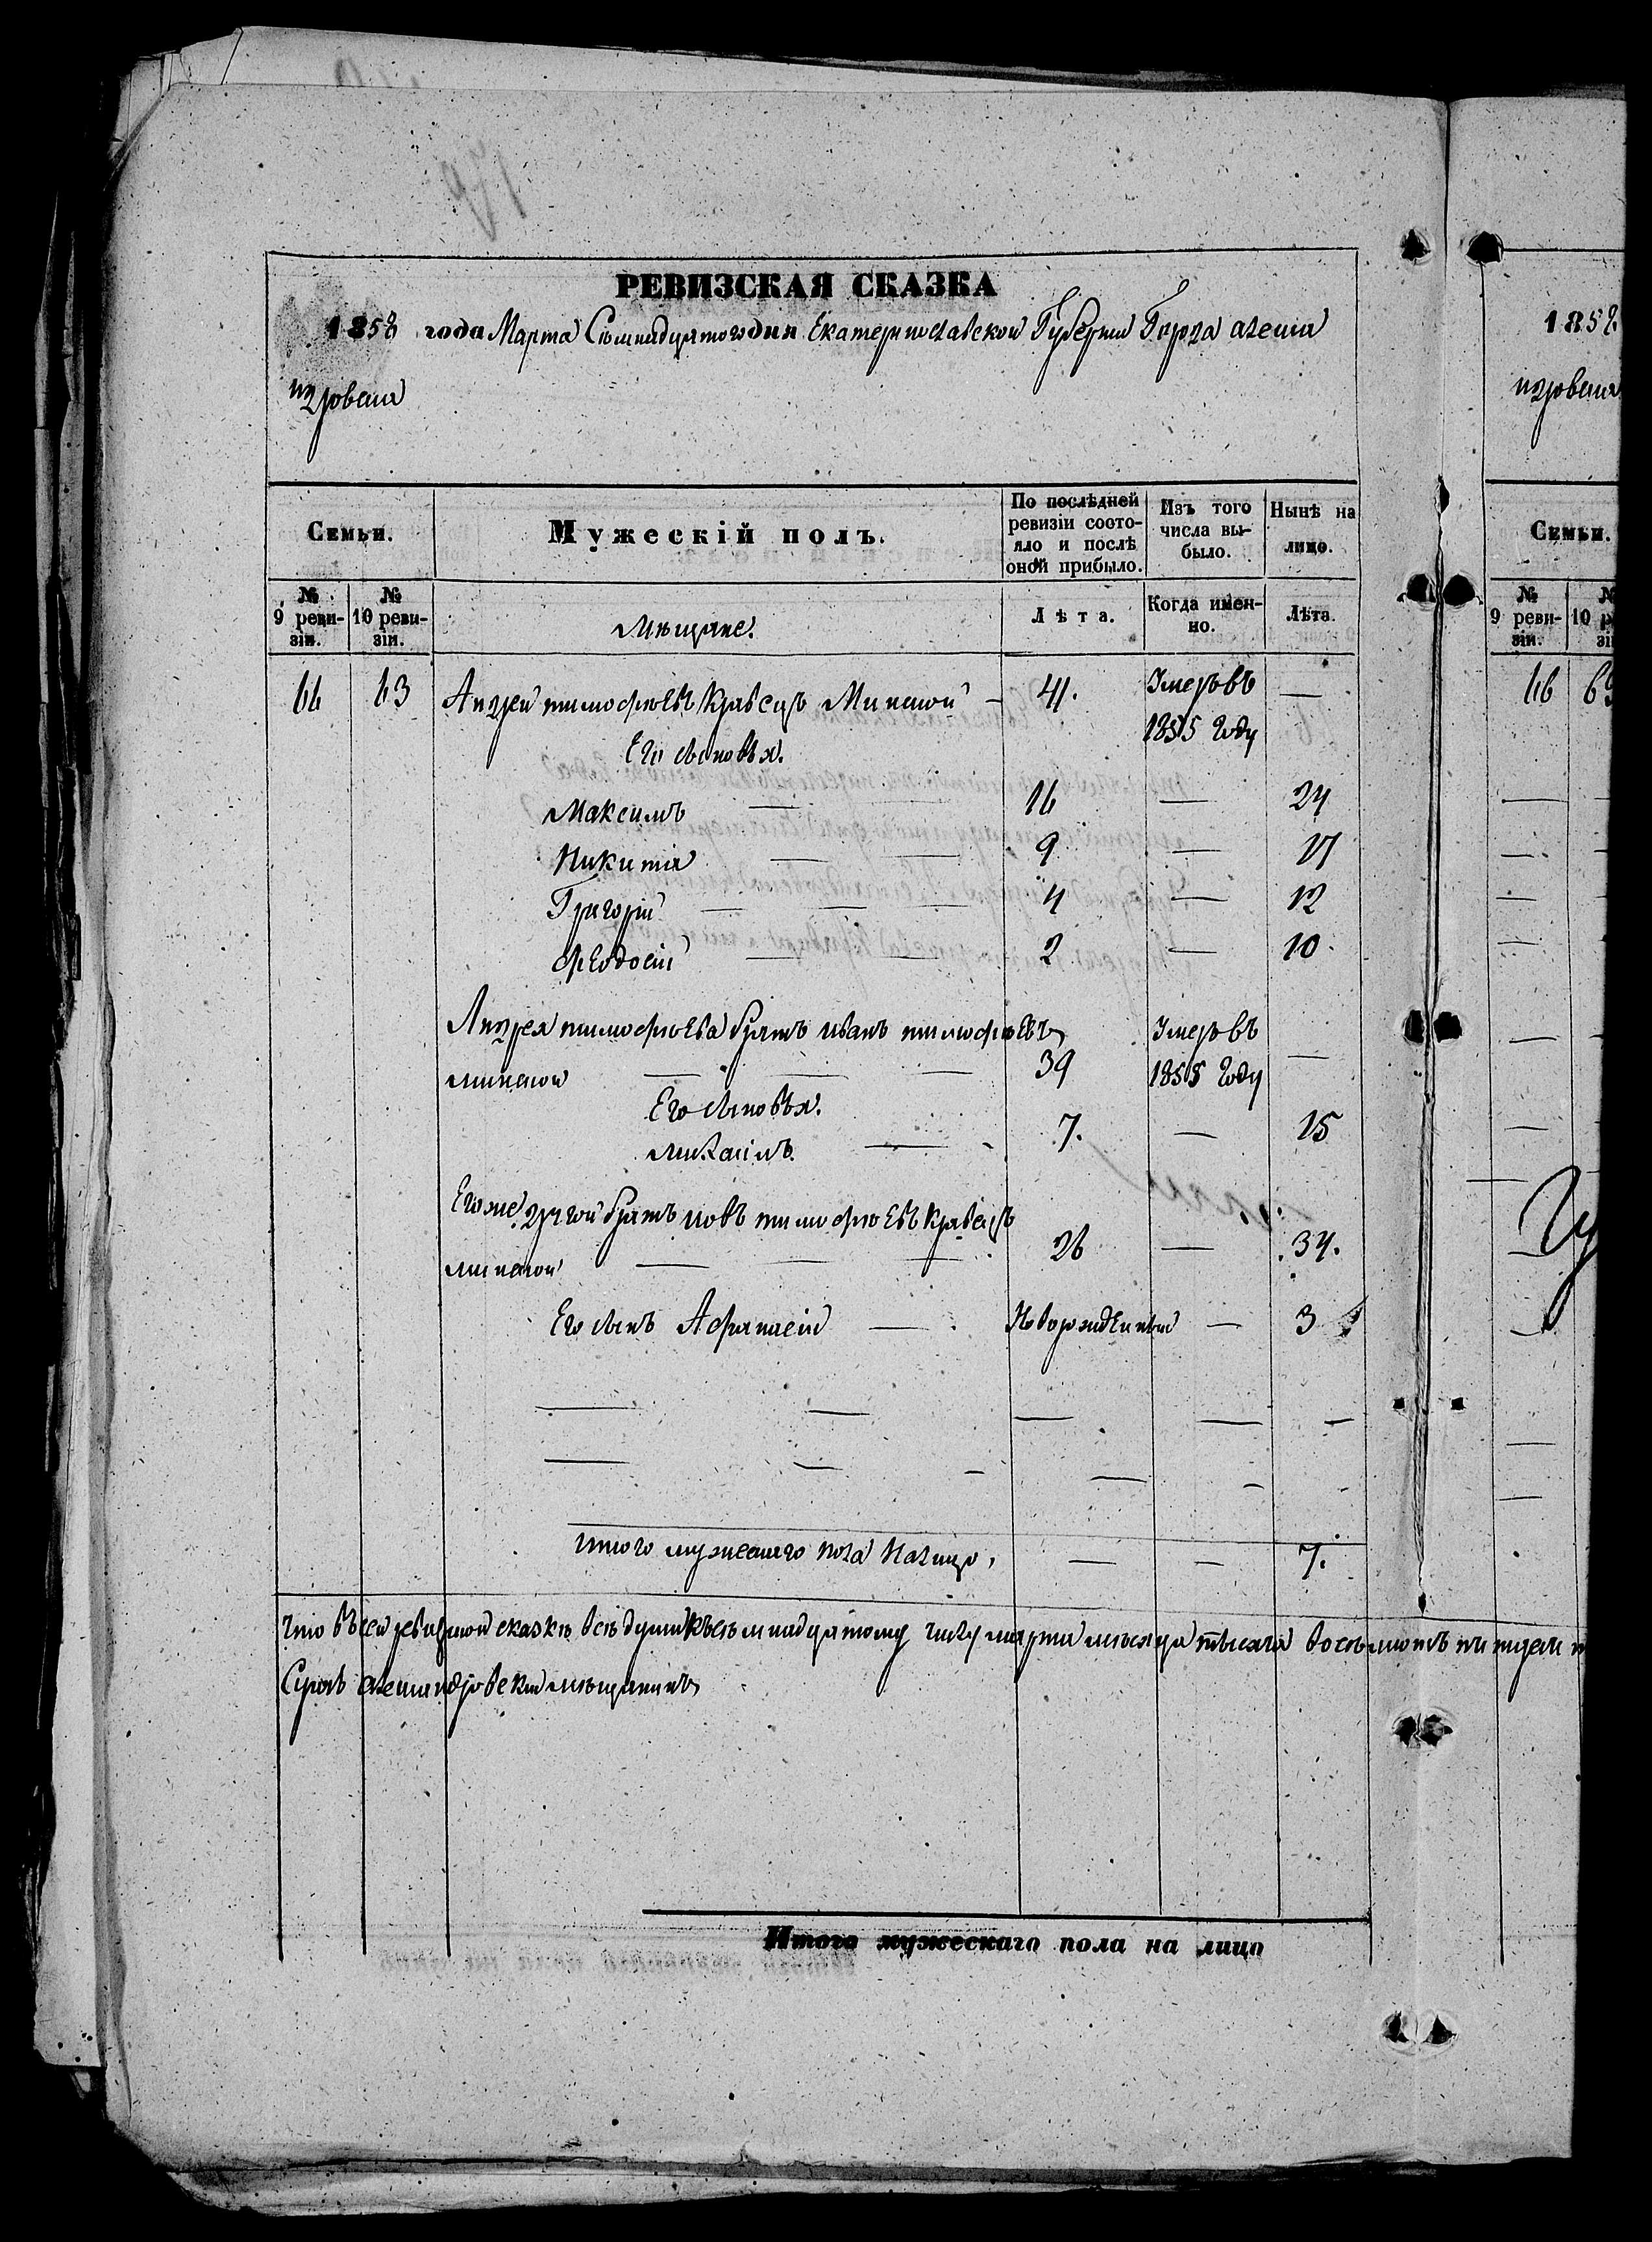 РЕВИЗСКАЯ СКАЗКА
1858 года Марта Семнадцатого дня Екатеринославской Губернии Города алексан
дровска
Семьи.
Мужескій полъ.
По послѣдней ревизіи состо-
яло и послѣ оной прибыло.
Изъ того числа вы-
было.
Нынѣ на лицо.
№ 9 реви-
зіи.
№ 10 реви-
зіи.
Мѣщане.
Лѣта.
Когда имен-
но.
Лѣта.
66 63 Андрей тимофѣевъ Кравецъ Минской — 41. Умеръ въ —
1855 году
Его сыновья.
Максимъ — — 16 — 24
Никита — — 9 — 17
Григорій — — — 4 — 12
Феодосій — — 2 — 10
Андрея тимофѣева братъ иванъ тимофѣевъ Умеръ въ
минской — — — 39 1855 году —
Его сыновья.
михаилъ — 7. — 15
Его же другой братъ иовъ тимофѣевъ Кравецъ
минской — — — 26 — 34.
Его сынъ Афанасій — Новорожденный — 3
итого мужескаго пола налицо, — — 7.
что въ сей ревизской сказкѣ всѣ души къ семнадцатому числу марта мѣсяца тысяча восемьсотъ пятдеси
александровской мѣщанинъ
Итого мужескаго пола на лицо
1858
дровска
Семьи.
№ 9 реви-
зіи.
66